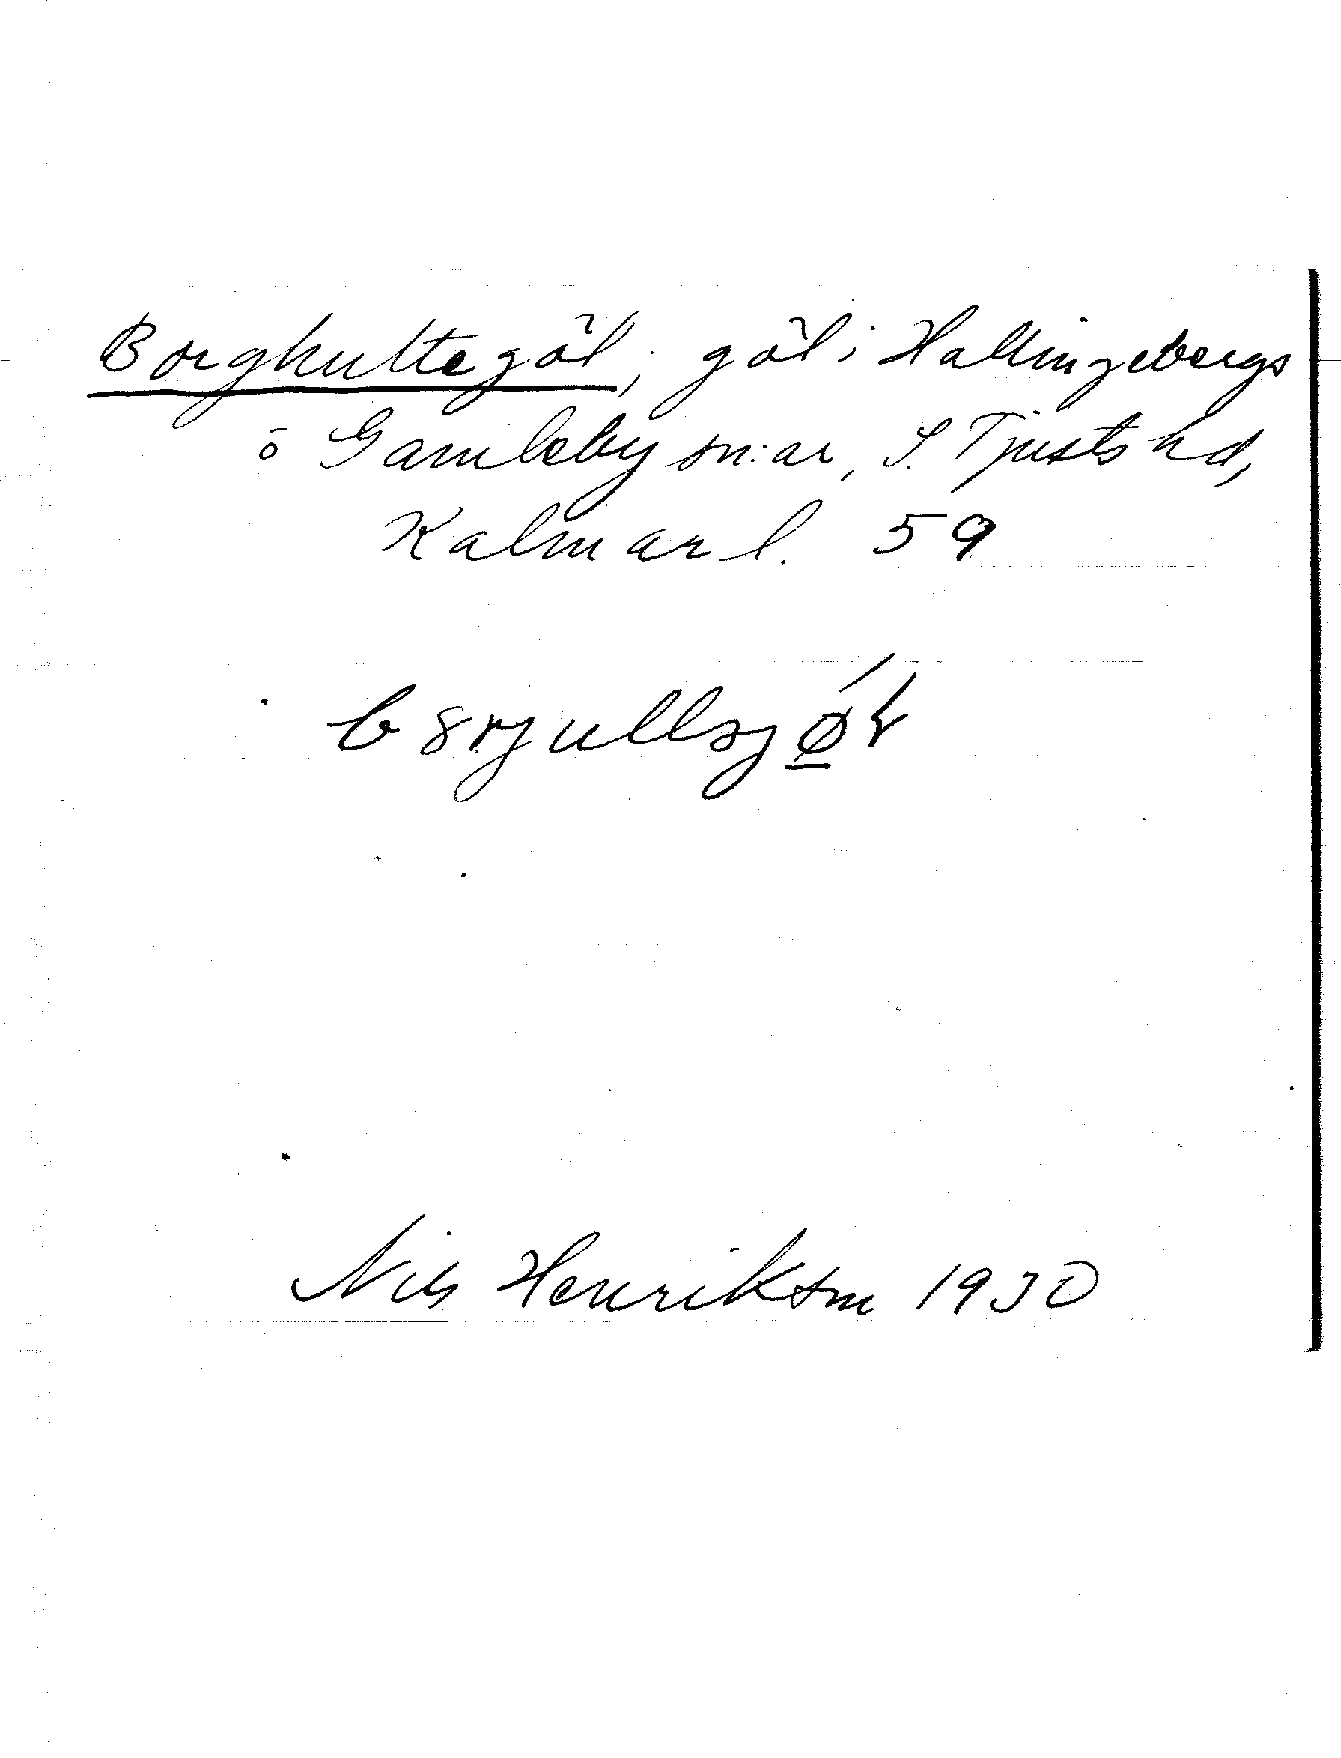 Borghultegöl, göl i Hallingebergs
o Gamleby sn:ar, S. Tjusts hd,
Kalmar l. 59
Nils Henrikson 1930